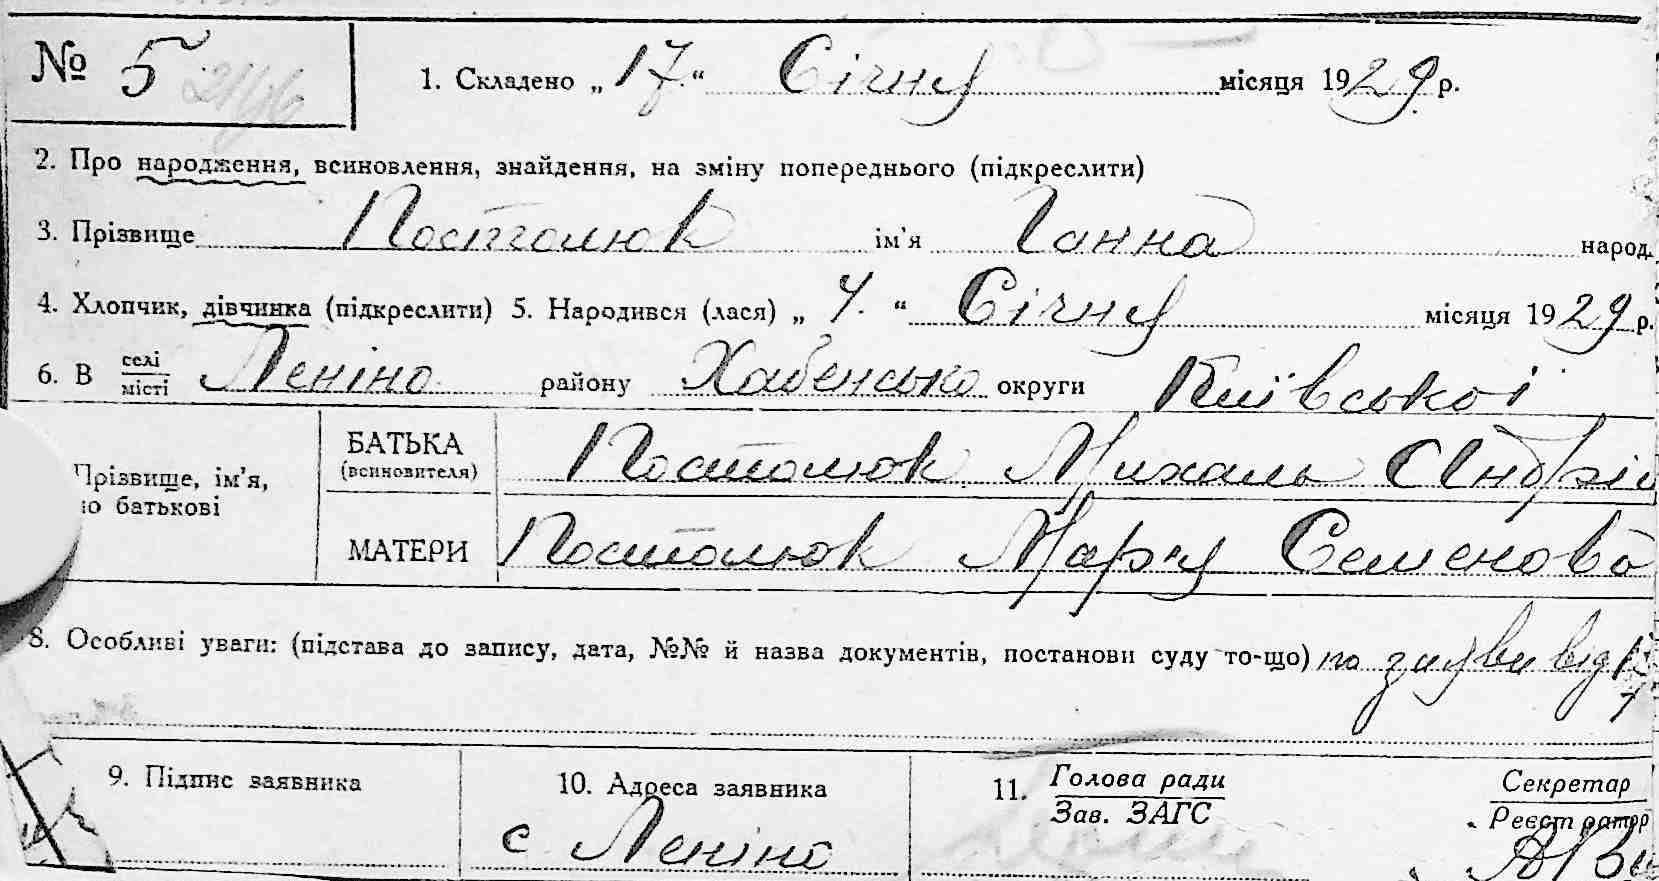 № 5 1. Складено „17“ Січня місяця 1929 р.
2. Про народження, всиновлення, знайдення, на зміну попереднього (підкреслити)
3. Прізвище Постолюк ім’я Ганна народ.
4. Хлопчик, дівчинка (підкреслити) 5. Народився (лася) „ “ Січня місяця 1929 р.
6. В селі/місті Леніно району Хабенсько округи Київської
Прізвище, ім’я,
по батькові
БАТЬКА
(всиновителя)
Постолюк Михаль Андрі
МАТЕРИ Постолюк Мар'я Семенова
8. Особливі уваги: (підстава до запису, дата, №№ й назва документів, постанови суду то-що) по заяви від
9. Підпис заявника 10. Адреса заявника 11. Голова ради Секретар
Зав. ЗАГС Реєстратор
с Леніно